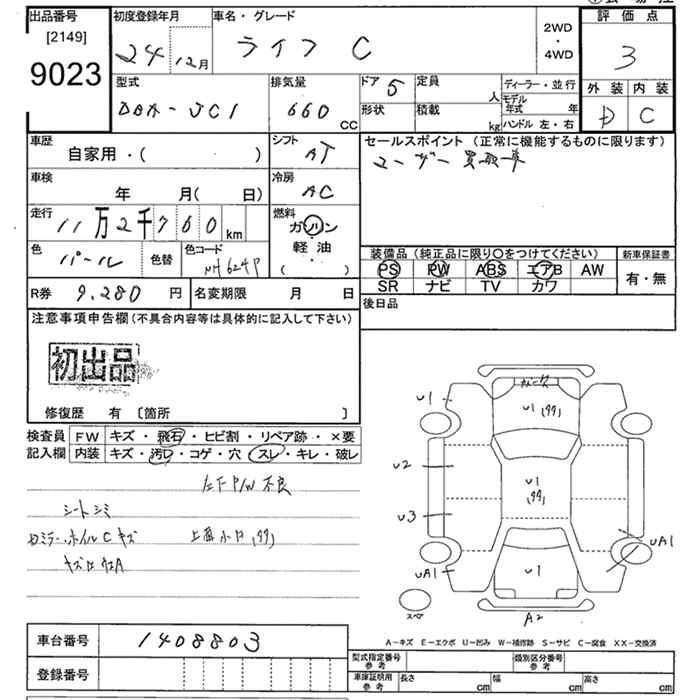 出品番号
[2149]
9023
初度登録年月
24 12月
車名・グレード
ライフ C
2WD
・
4WD
評価点
3
外装 内装
D C
型式
DBA-JC1
排気量
660 CC
ドア 5
定員
人
形状
積載
kg
ディーラー・並行
モデル年式 年
ハンドル 左・右
車歴
自家用・( )
シフト
AT
セールスポイント (正常に機能するものに限ります)
ユーザー買取車
車検
年 月( 日)
冷房
AC
走行
11万2千760 km
燃料
ガソリン
軽油
・
( )
色
パール
色替
色コード
NH624P
装備品 (純正品に限り○をつけてください)
PS PW ABS エアB AW
SR ナビ TV カワ
新車保証書
有・無
R券 9,280 円
名変期限 月 日
後日品
注意事項申告欄 (不具合内容等は具体的に記入して下さい)
初出品
修復歴 有 〔箇所 〕
検査員記入欄
FW キズ・飛石・ヒビ割・リペア跡・×要
内装 キズ・汚レ・コゲ・穴・スレ・キレ・破レ
左下P/W不良
シートシミ
ホイルCキズ
U1
U1
U2
U1
U3
UA1
UA1
U1
スペア
A2
A-キズ E-エクボ U-凹み W-補修跡 S-サビ C-腐食 XX-交換済
車台番号 1408803
登録番号
型式指定番号
参考
類別区分番号
参考
車庫証明用
参考
長さ cm
幅 cm
高さ cm